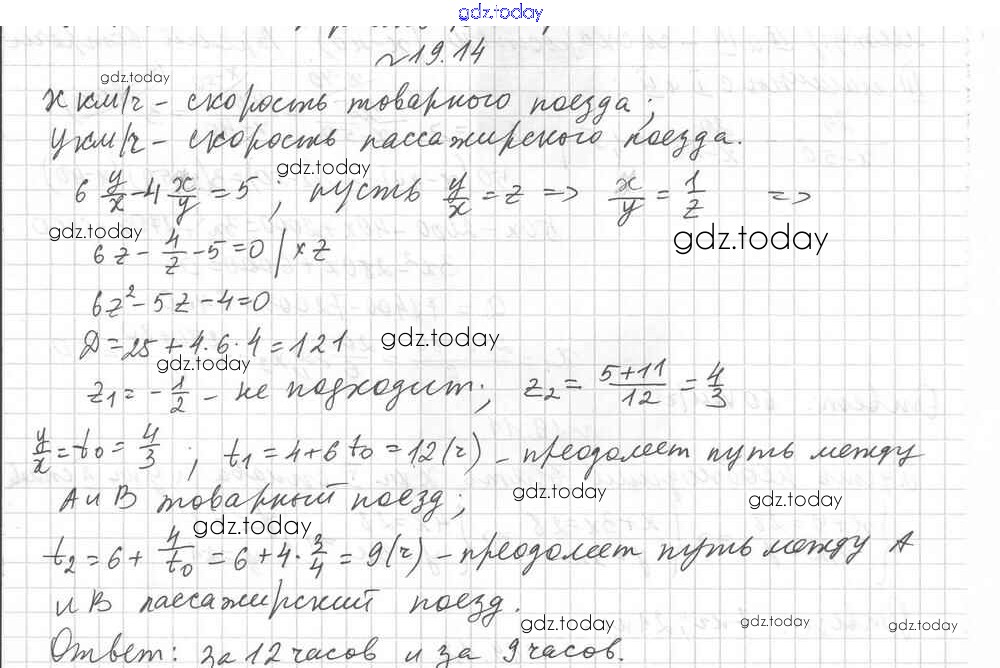 gdz.today
№19.14
gdz.today
x км/ч – скорость товарного поезда;
y км/ч – скорость пассажирского поезда.
gdz.today
6 y/x – 4 x/y = 5 ; пусть y/x = z => x/y = 1/z =>
gdz.today
gdz.today
6z – 4/z – 5 = 0 | × z
6z² – 5z – 4 = 0
Д = 25 + 4·6·4 = 121
gdz.today
gdz.today
z₁ = – 1/2 – не подходит; z₂ = (5+11)/12 = 4/3
y/x = t₀ = 4/3 ; t₁ = 4 + 6 t₀ = 12 (ч) – преодолеет путь между
A и B товарный поезд;
gdz.today
gdz.today
gdz.today
t₂ = 6 + 4/t₀ = 6 + 4 · 3/4 = 9 (ч) – преодолеет путь между A
и B пассажирский поезд.
gdz.today
gdz.today
gdz.today
Ответ: за 12 часов и за 9 часов.